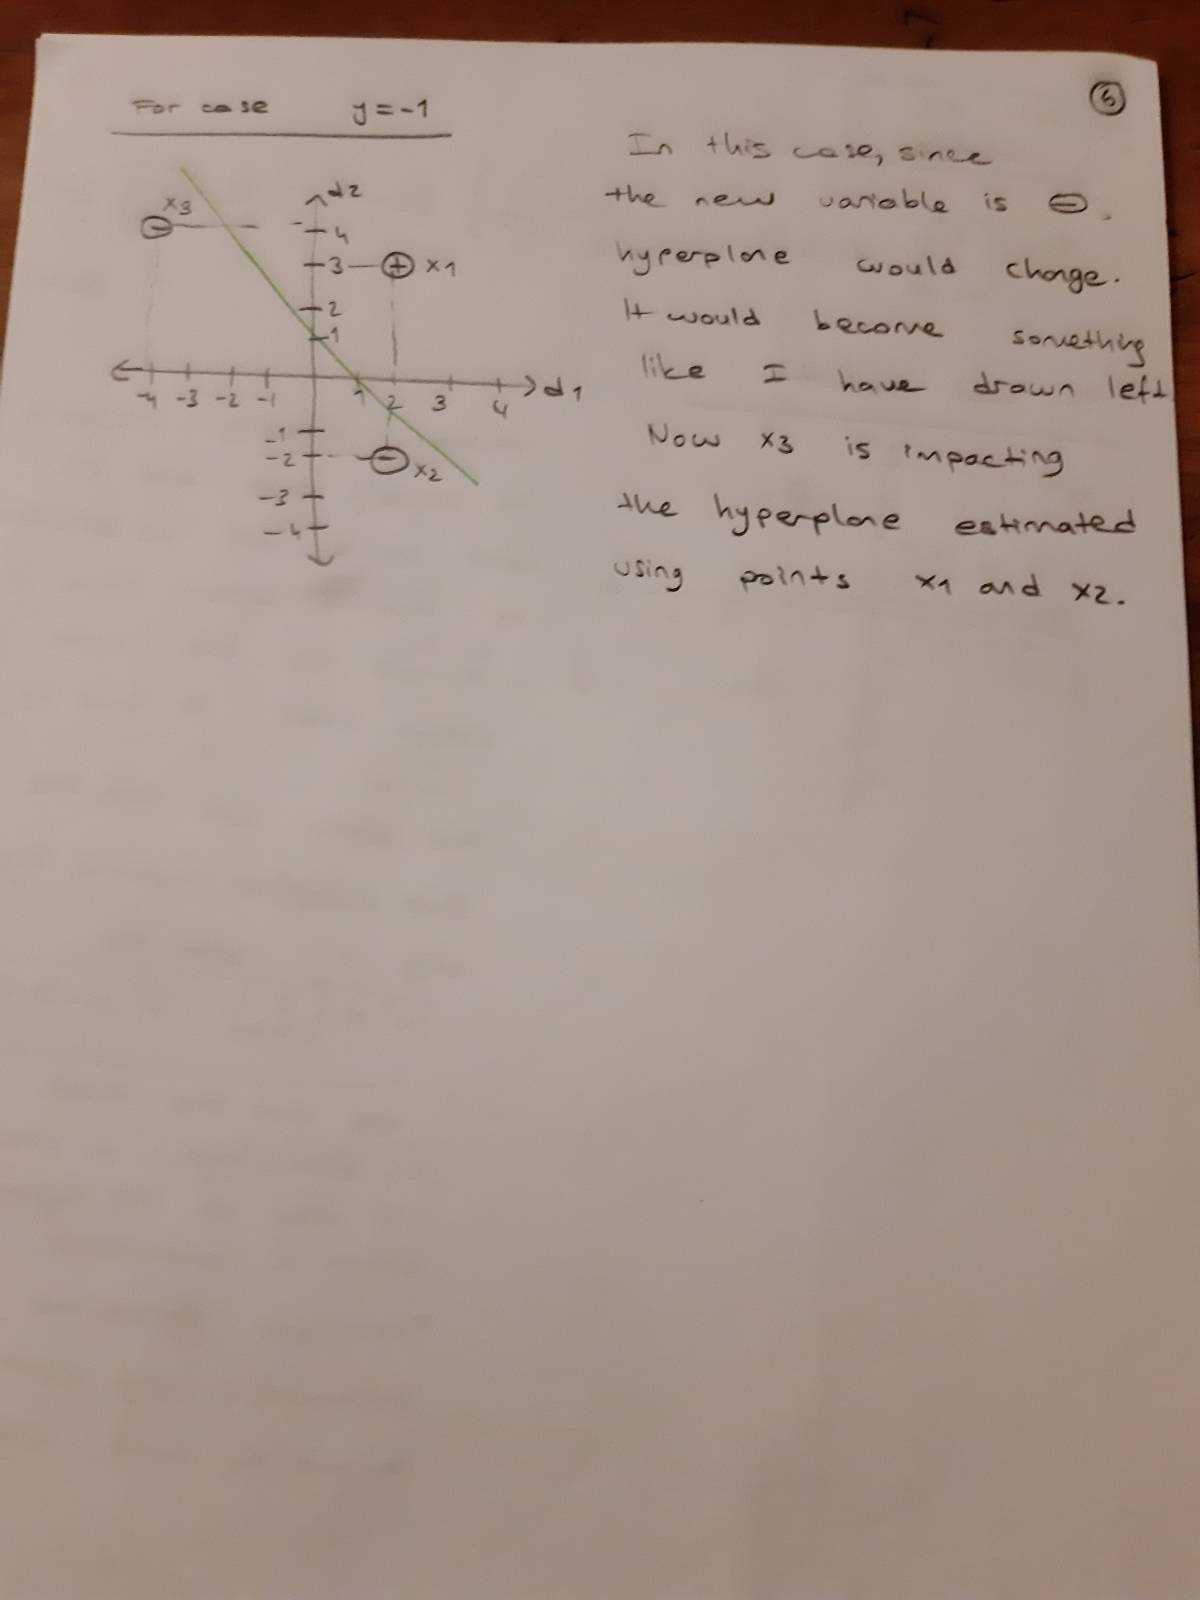 For case y = -1
6
d2
x3
4
3 + x1
2
1
-4 -3 -2 -1 1 2 3 4 d1
-1
-2 - x2
-3
-4
In this case, since
the new variable is ⊖.
hyperplane would change.
It would become something
like I have drawn left
Now x3 is impacting
the hyperplane estimated
using points x1 and x2.